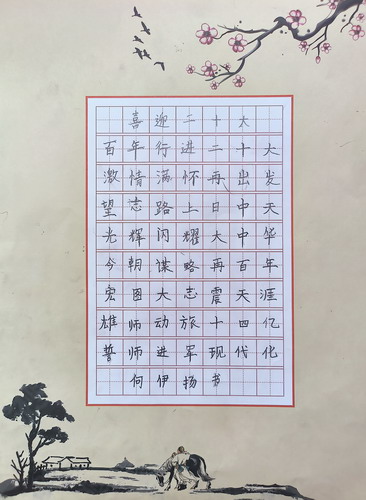 喜迎二十大
百年行进二十大
激情满怀再出发
望志路上日中天
光辉闪耀大中华
今朝谋略再百年
宏图大志震天涯
雄师动旅十四亿
誓师进军现代化
何伊扬书